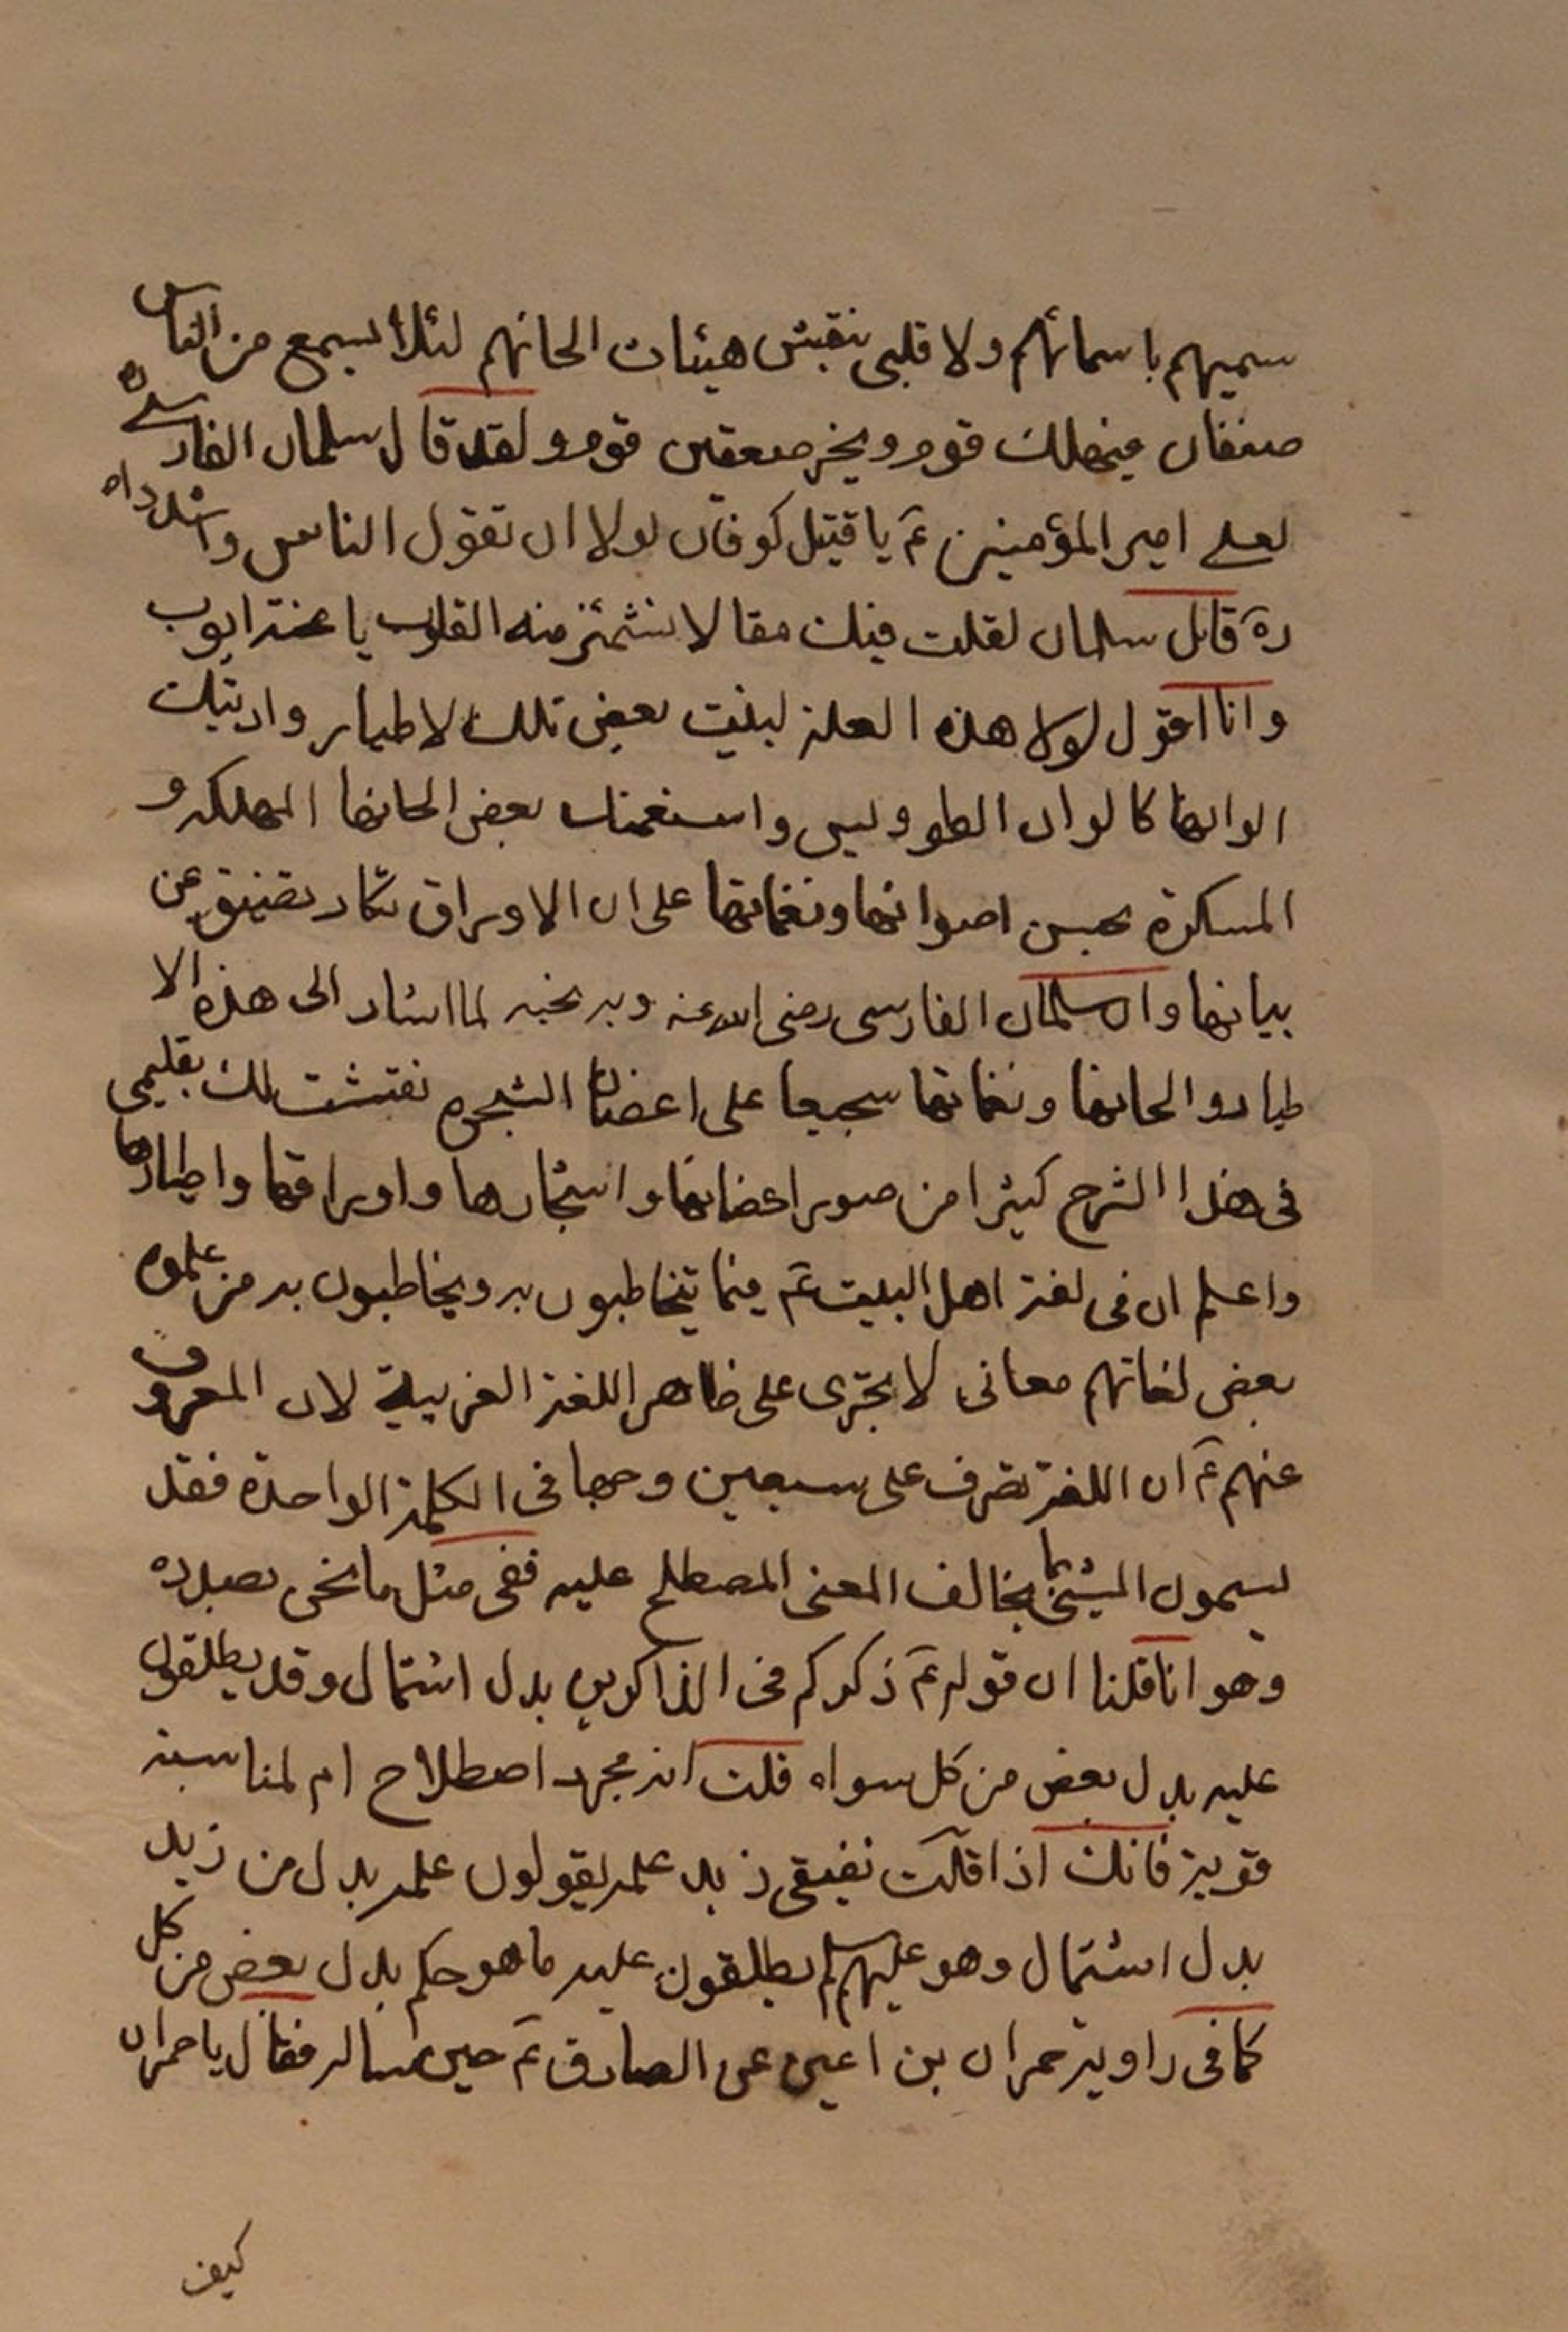 سميهم باسمائهم ولا قلبى بنقش هيئات الحانهم لئلا يسمع من الناس
ضعفاء فيهلك قوم ويخر صعقين قوم ولقد قال سلمان الفارسى ره
لعلى امير المؤمنين ع يا قتيل كوفان لولا ان تقول الناس واشدداه
ره قاتل سلمان لقلت فيك مقالا تشمئز منه القلوب يا محنة ايوب
وانا اقول لولا هذه العلة لبنيت بعض تلك الاطيار واريتك
الوانها كالوان الطووليس واسمعتك بعض الحانها المهلكه و
المسكرة بحسن اصواتها ونغماتها على ان الاوراق تكاد تضيق عن
بيانها وان سلمان الفارسى رضى الله عنه وبه نحبه لما اشار الى هذه الا
طيار والحانها ونغماتها سجعا على اغصان الشجرة نقشت لك بقلمى
فى هذا الشرح كثيرا من صور اغصانها واشجارها واوراقها واطيارها
واعلم ان فى لغة اهل البيت ع فيما يتخاطبون به ويخاطبون به من علموه
بعض لغاتهم معانى لا تجرى على ظاهر اللغة العربية لان المعروف
عنهم ع ان اللغة تصرف على سبعين وجها فى الكلمة الواحدة فقد
يسمون الشئ بما يخالف المعنى المصطلح عليه ففى مثل ما نحن بصدده
وهو انا قلنا ان قوله ع ذكركم فى الذاكرين بدل اشتمال وقد يطلقون
عليه بدل بعض من كل سواء قلت انه مجرد اصطلاح ام لمناسبة
قوية فانك اذا قلت نفعنى زيد علمه يقولون علمه بدل من زيد
بدل اشتمال وهو عليهم السلم يطلقون عليه ما هو حكم بدل بعض من كل
كما فى راوية حمران بن اعين عن الصادق ع حين ساله فقال يا حمران
كيف